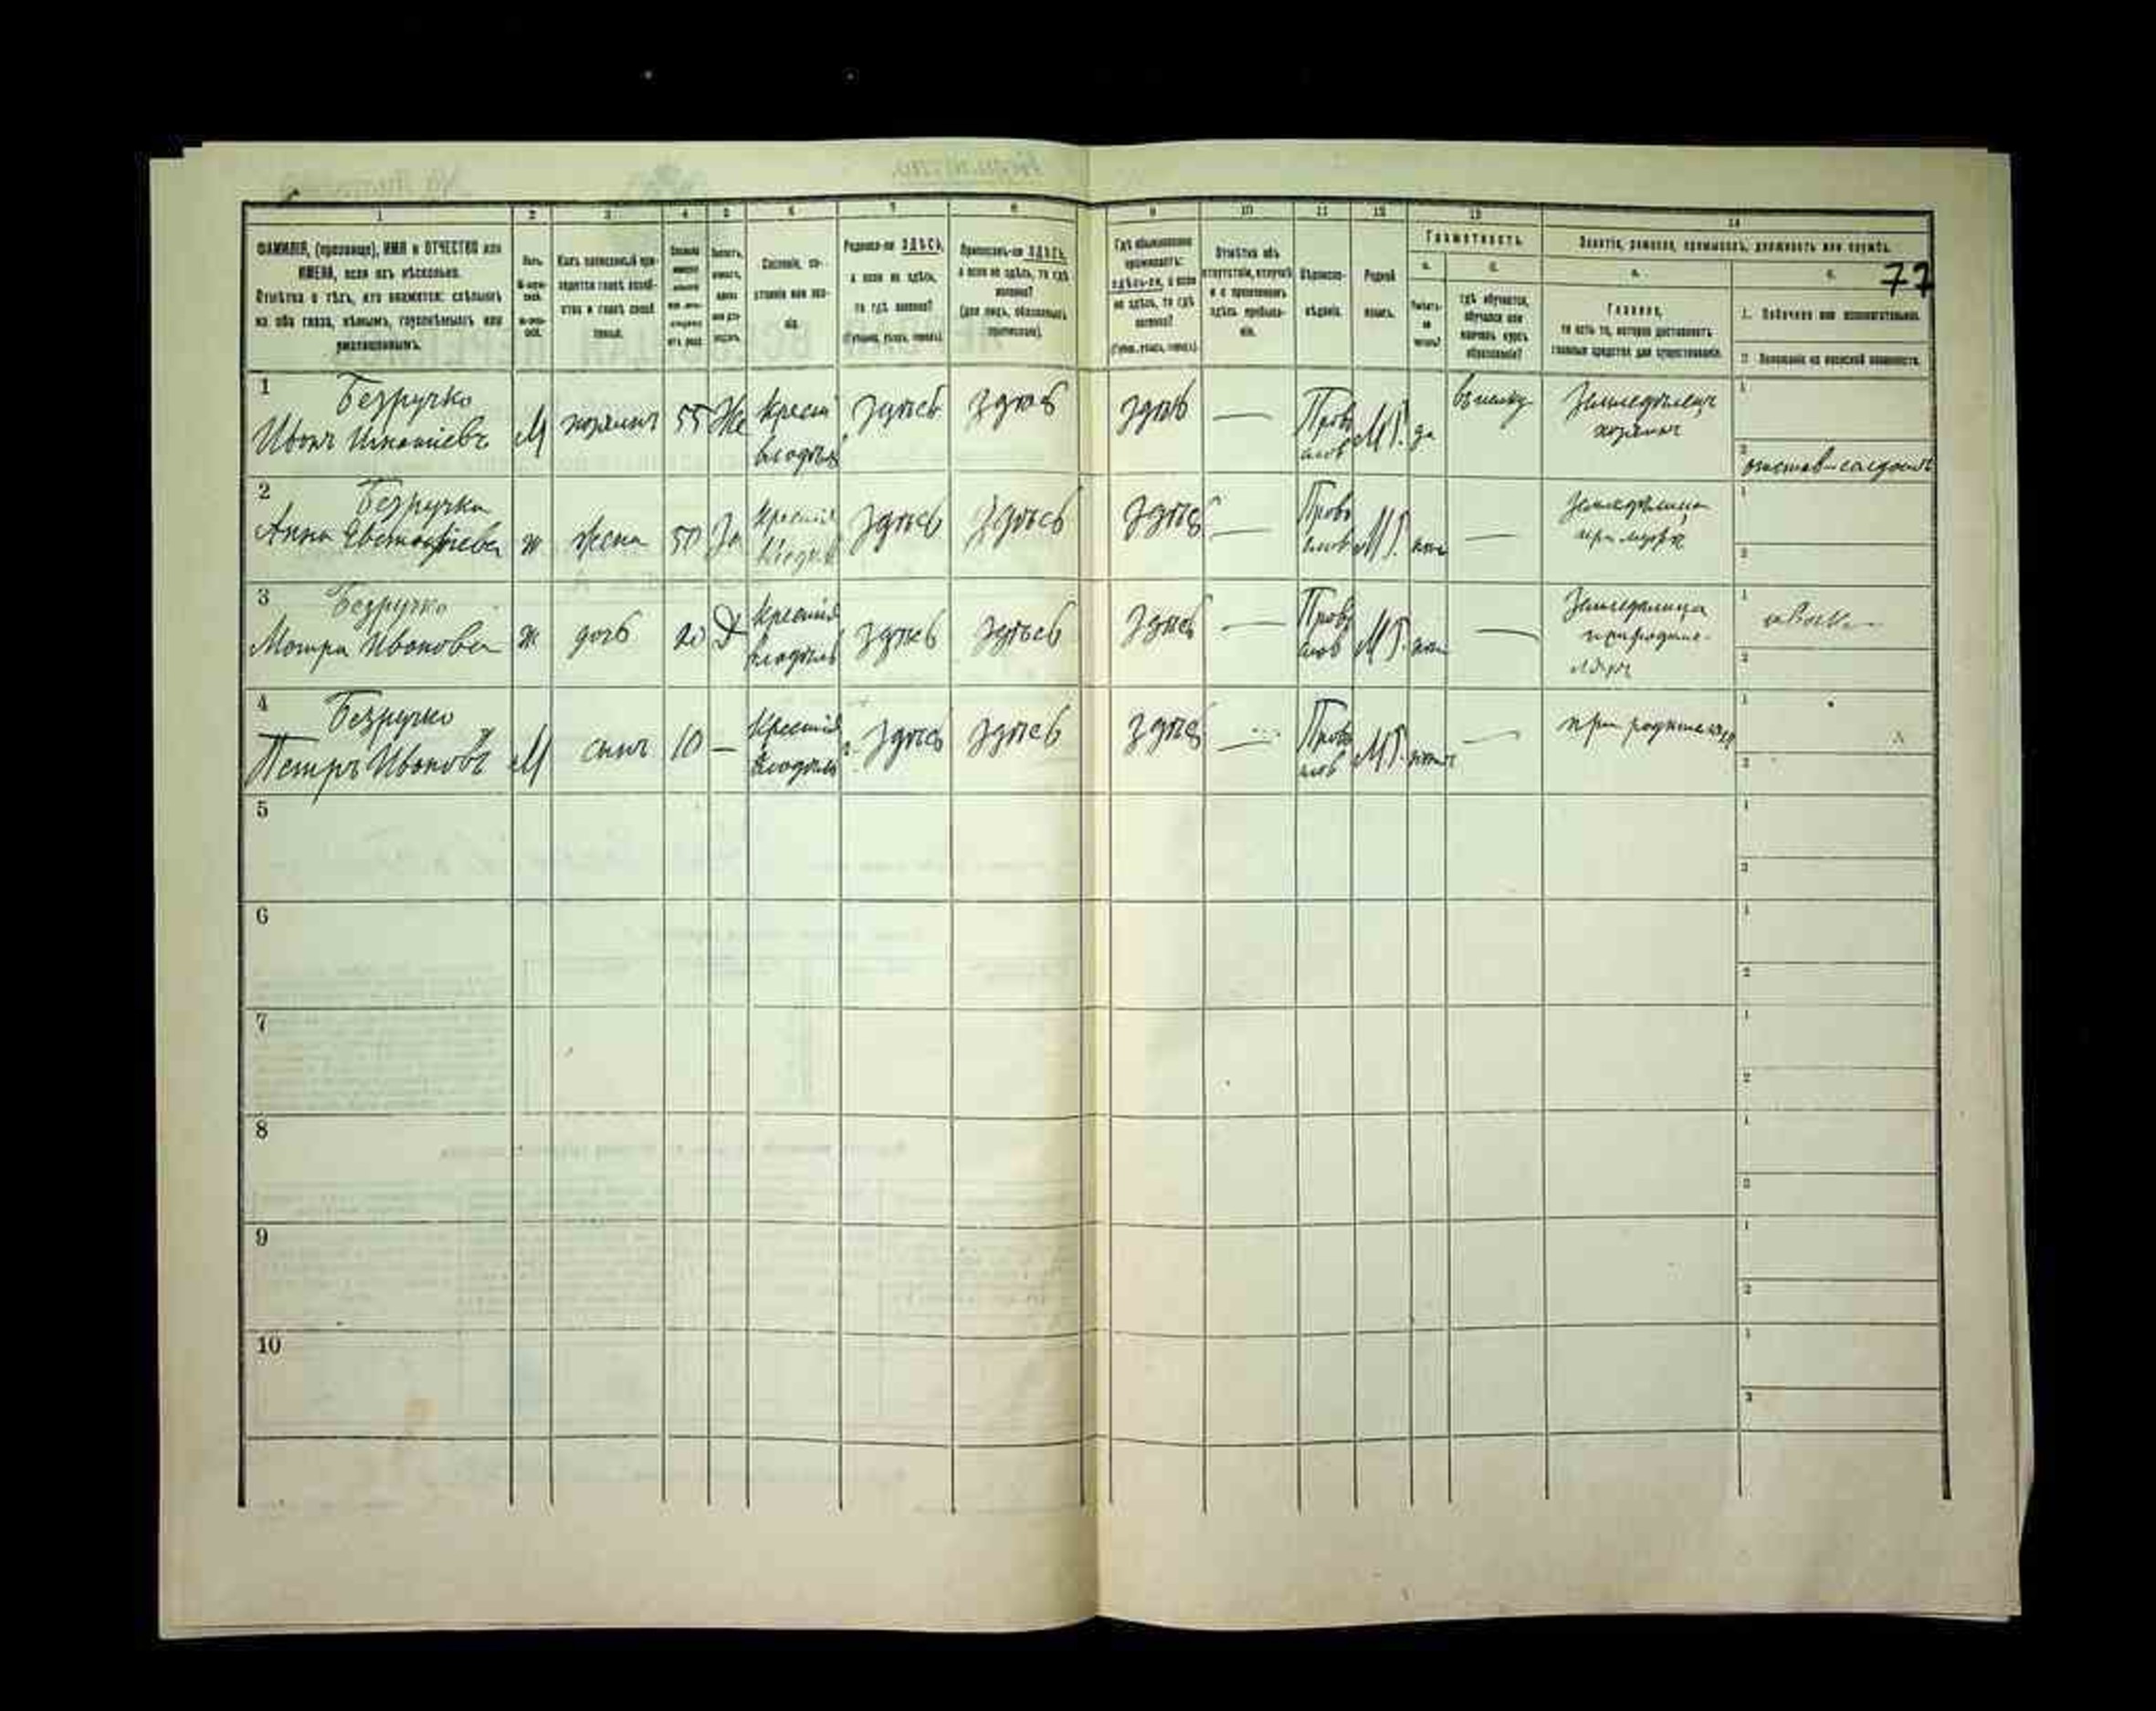 77
1 2 3 4 5 6 7 8 9 10 11 12 13 14
ФАМИЛІЯ, (прозвище), ИМЯ и ОТЧЕСТВО или
ИМЕНА, если ихъ нѣсколько.
Отмѣтка о тѣхъ, кто окажется: слѣпымъ
на оба глаза, нѣмымъ, глухонѣмымъ или
умалишеннымъ.
Полъ.
Какъ записанный при-
ходится главѣ хозяй-
ства и главѣ своей
семьи.
Сословіе, со-
стояніе или зва-
ніе.
Родился-ли ЗДѢСЬ,
а если не здѣсь,
то гдѣ именно?
(Губернія, уѣздъ, городъ).
Приписанъ-ли ЗДѢСЬ,
а если не здѣсь, то гдѣ
именно?
(для лицъ, обязанныхъ
припискою).
Гдѣ обыкновенно
проживаетъ:
здѣсь-ли, а если
не здѣсь, то гдѣ
именно?
(Губ., уѣздъ, городъ).
Отмѣтка объ
отсутствіи, отлучкѣ
и о временномъ
здѣсь пребыва-
ніи.
Вѣроиспо-
вѣданіе.
Родной
языкъ.
Грамотность.
а.
Умѣетъ-
ли
читать?
б.
гдѣ обучается,
обучался или
кончилъ курсъ
образованія?
Занятіе, ремесло, промыселъ, должность или служба.
а.
Главное,
то есть то, которое доставляетъ
главныя средства для существованія.
б.
1. Побочное или вспомогательное.
2. Положеніе по воинской повинности.
1
Безручко
Иванъ Игнатіевъ
М
хозяинъ
55
Же
Крестья
владѣл
здѣсь
здѣсь
здѣсь
—
Право
слав
М.
да
въ полку
Земледѣлецъ
хозяинъ
1
2
отстав-солдатъ
2
Безручко
Анна Евстафіева
ж
жена
50
За
Крестья
владѣл
здѣсь
здѣсь
здѣсь
—
Право
слав
М.
нѣтъ
—
Земледѣлица
при мужѣ
1
2
3
Безручко
Мотря Иванова
ж
дочь
20
Д
Крестья
владѣл
здѣсь
здѣсь
здѣсь
—
Право
слав
М.
нѣтъ
—
Земледѣлица
при родите-
ляхъ
1
2
4
Безручко
Петръ Ивановъ
М
сынъ
10
—
Крестья
владѣл
здѣсь
здѣсь
здѣсь
—
Право
слав
М.
нѣтъ
—
при родителяхъ
1
2
5
1
2
6
1
2
7
1
2
8
1
2
9
1
2
10
1
2